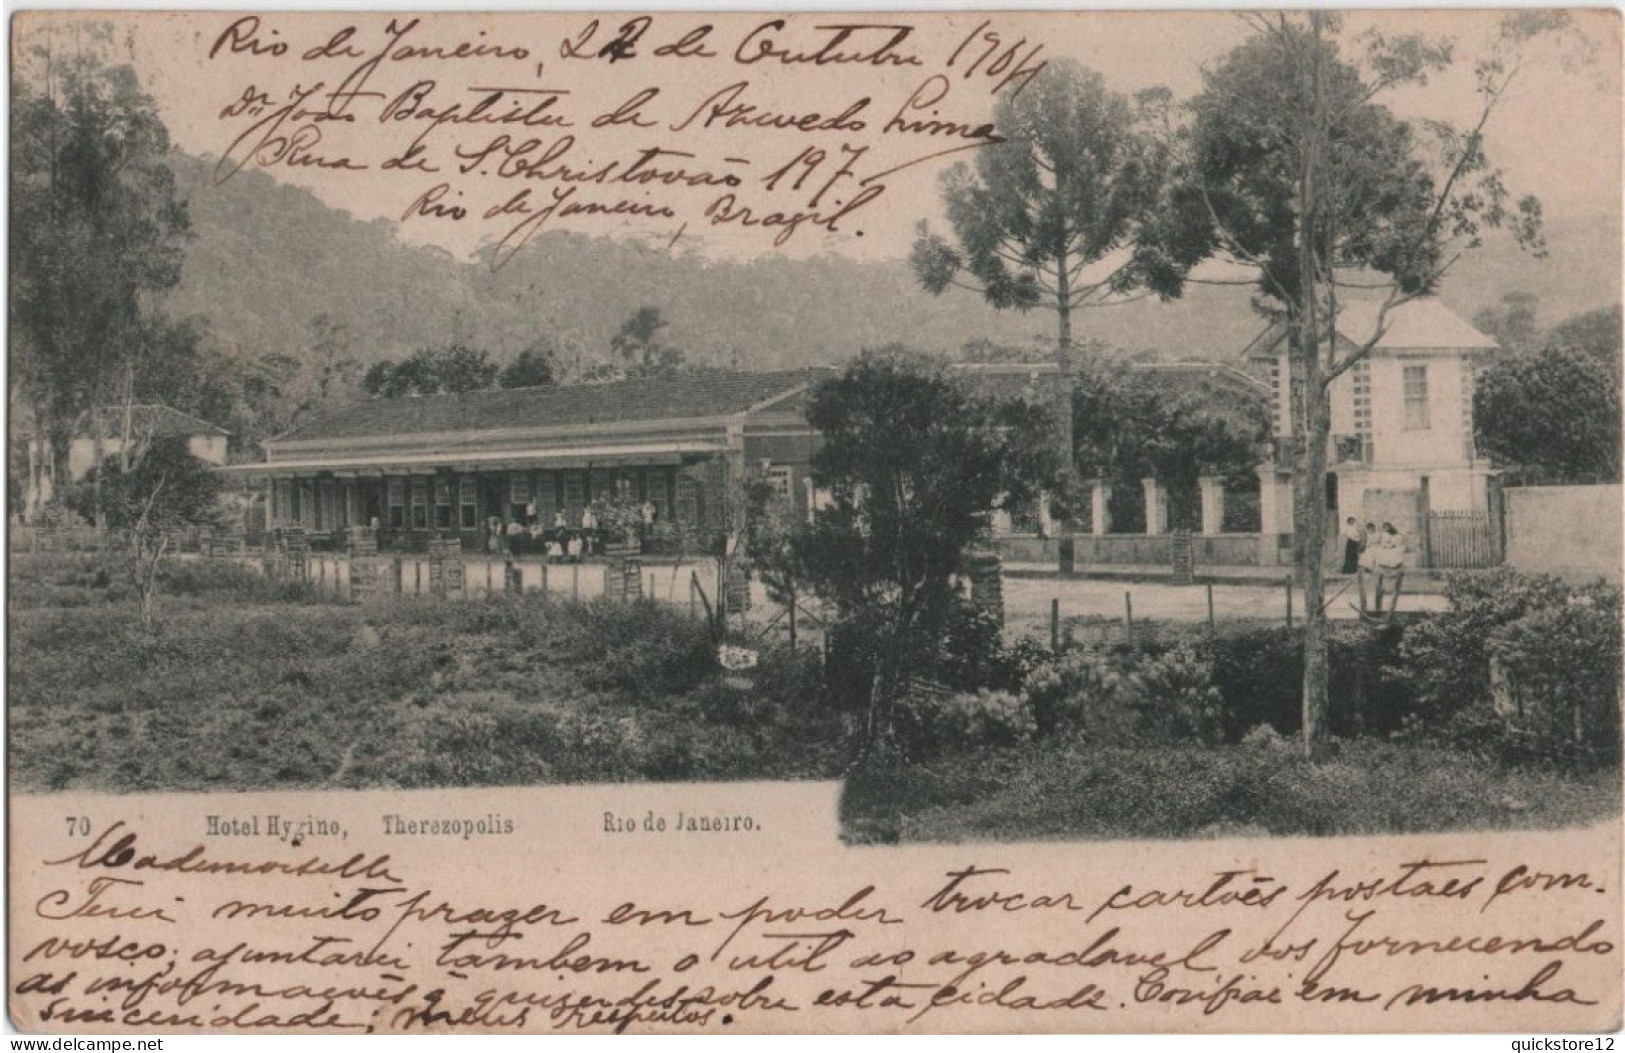 Rio de Janeiro, 22 de Outubro 1904
Dr. João Baptista de Azevedo Lima
Rua de S. Christovão 197
Rio de Janeiro, Brazil.
70 Hotel Hygino, Therezopolis Rio de Janeiro.
Mademoiselle
Terei muito prazer em poder trocar cartões postaes com-
vosco; ajuntarei tambem o util ao agradavel vos fornecendo
as informações q̃ quizerdes sobre esta cidade. Confiai em minha
sinceridade: meus respeitos.
www.delcampe.net
quickstore12